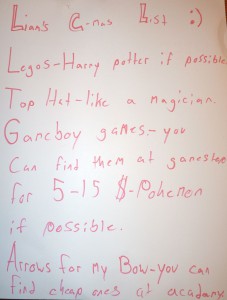 Liam's C-mas List :)
Legos-Harry potter if possible
Top Hat-like a magician.
Gameboy games-you
Can find them at gamestore
for 5-15 $-Pokemon
if possible.
Arrows for my Bow-you can
find cheap ones at acadamy